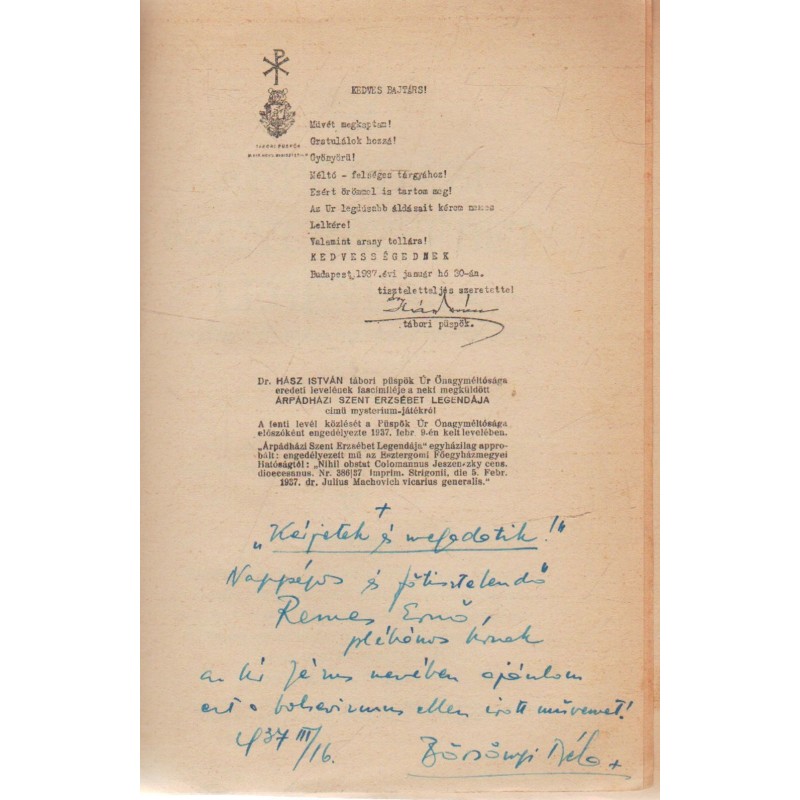 KEDVES BAJTÁRS!
TÁBORI PÜSPÖK
Művét megkaptam!
Gratulálok hozzá!
Gyönyörű!
Méltó - felséges tárgyához!
Ezért örömmel is tartom meg!
Az Úr legdúsabb áldásait kérem nemes
Lelkére!
Valamint arany tollára!
KEDVESSÉGEDNEK
Budapest,1937.évi január hó 30-án.
tiszteletteljes szeretettel
tábori püspök.
Dr. HÁSZ ISTVÁN tábori püspök Úr Őnagyméltósága
eredeti levelének fascimiléje a neki megküldött
ÁRPÁDHÁZI SZENT ERZSÉBET LEGENDÁJA
című mysterium-játékról
A fenti levél közlését a Püspök Úr Őnagyméltósága
előszóként engedélyezte 1937. febr. 9-én kelt levelében.
„Árpádházi Szent Erzsébet Legendája" egyházilag appro-
bált: engedélyezett mű az Esztergomi Főegyházmegyei
Hatóságtól: „Nihil obstat Colomannus Jeszenszky cens.
dioecesanus. Nr. 386|37 Imprim. Strigonii, die 5. Febr.
1937. dr. Julius Machovich vicarius generalis."
+
„Kérjetek és megadatik!"
és főtisztelendő
Remes Ernő,
plébános Úrnak
az Úr Jézus nevében ajánlom
ezt a bolsevizmus ellen írott művemet!
937 III/16. Börzsönyi Béla +